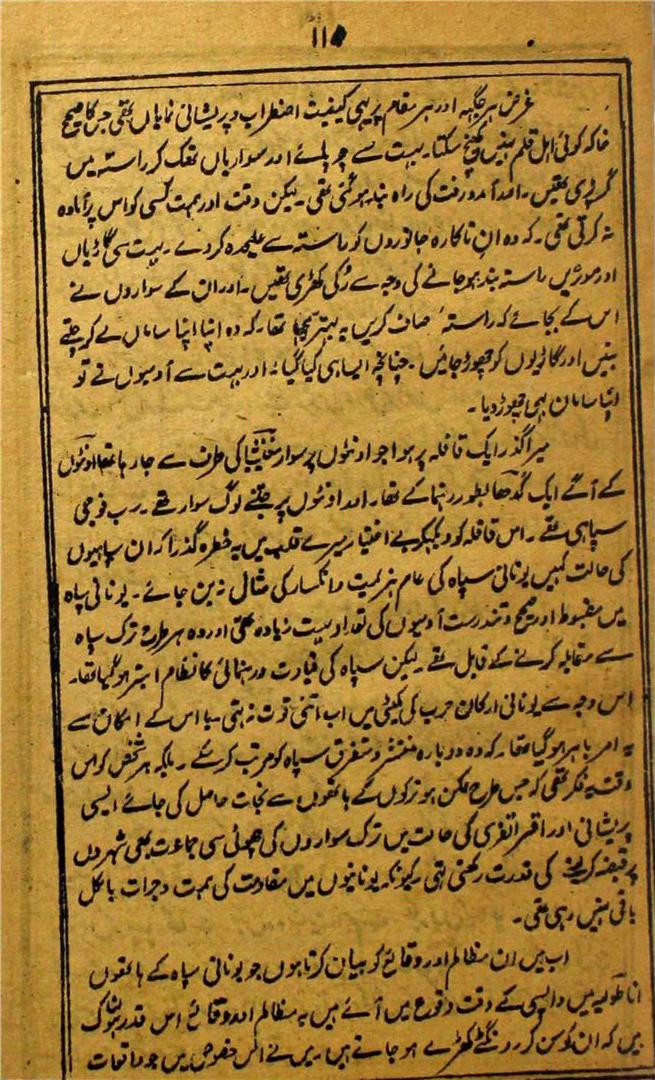 ۱۱۵
غرض ہر جگہہ اور ہر مقام پر یہی کیفیت اضطراب و پریشانی نمایاں تھی جس کا صحیح
خاکہ کوئی اہل قلم نہیں کھینچ سکتا۔ بہت سے چوپائے اور سواریاں تھک کر راستہ میں
گر پڑی تھیں۔ اور آمدورفت کی راہ بند ہو گئی تھی۔ لیکن وقت اور ہمت کسی کو اس پر آمادہ
نہ کرتی تھی۔ کہ وہ ان ناکارہ جانوروں کو راستہ سے علیحدہ کر دے۔ بہت سی گاڑیاں
اور موٹریں راستہ بند ہو جانے کی وجہ سے رُکی کھڑی تھیں۔ اور ان کے سواروں نے
اس کے بجائے کہ راستہ صاف کریں یہ بہتر سمجھا تھا۔ کہ وہ اپنا اپنا سامان لے کر چلتے
بنیں اور گاڑیوں کو چھوڑ جائیں۔ چنانچہ ایسا ہی کیا گیا۔ اور بہت سے آدمیوں نے تو
اپنا سامان بھی چھوڑ دیا۔
میرا گذر ایک قافلہ پر ہوا جو اونٹوں پر سوار کی طرف سے جا رہا تھا اونٹوں
کے آگے ایک گدھا بطور رہنما کے تھا۔ اور اونٹوں پر جتنے لوگ سوار تھے۔ سب فوجی
سپاہی تھے۔ اس قافلہ کو دیکھکر بے اختیار میرے قلب میں یہ خطرہ گذرا کہ ان سپاہیوں
کی حالت کہیں یونانی سپاہ کی عام ہزیمت وانکسار کی مثال نہ بن جائے۔ یونانی سپاہ
میں مضبوط اور صحیح وتندرست آدمیوں کی تعداد بہت زیادہ تھی اور وہ ہر طرح ترک سپاہ
سے مقابلہ کرنے کے قابل تھے۔ لیکن سپاہ کی قیادت ورہنمائی کا نظام ابتر ہو گیا تھا۔
اس وجہ سے یونانی ارکان حرب کی کمیٹی میں اب اتنی قوت نہ تھی۔ یا اس کے امکان سے
یہ امر باہر ہو گیا تھا۔ کہ وہ دوبارہ منتشر ومتفرق سپاہ کو مرتب کر سکے۔ بلکہ ہر شخص کو اس
وقت یہ فکر تھی کہ جس طرح ممکن ہو ترکوں کے ہاتھوں سے نجات حاصل کی جائے ایسی
پریشانی اور افراتفری کی حالت میں ترک سواروں کی چھوٹی سی جماعت بھی شہروں
پر قبضہ کرنے کی قدرت رکھتی تھی۔ کیونکہ یونانیوں میں مقاومت کی ہمت وجرات بالکل
باقی نہیں رہی تھی۔
اب میں ان مظالم اور وقائع کو بیان کرتا ہوں جو یونانی سپاہ کے ہاتھوں
اناطولیہ میں واپسی کے وقت وقوع میں آئے ہیں یہ مظالم اور وقائع اس قدر ہولناک
ہیں کہ ان کو سن کر رونگٹے کھڑے ہو جاتے ہیں۔ میں نے اس خصوص میں جو واقعات